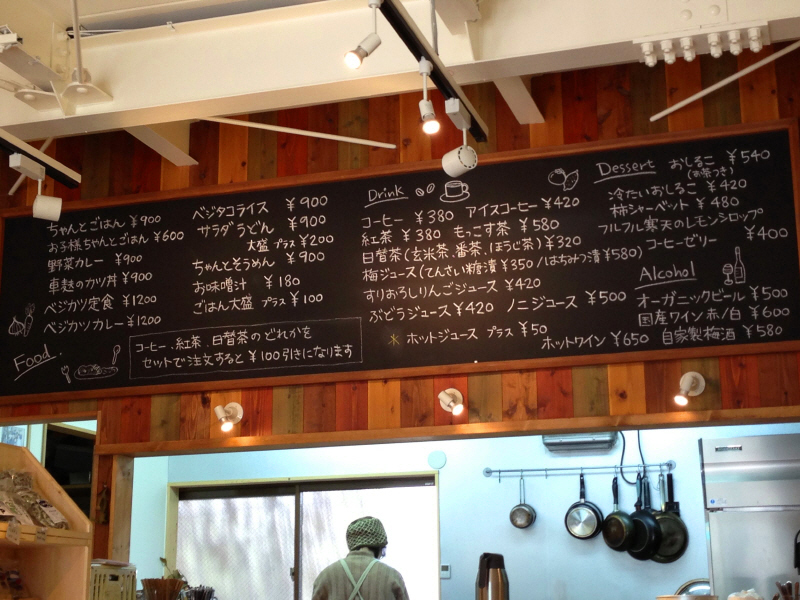 ちゃんとごはん ¥900
お子様ちゃんとごはん ¥600
野菜カレー ¥900
車麩のカツ丼 ¥900
ベジカツ定食 ¥1200
ベジカツカレー ¥1200
Food.
ベジタコライス ¥900
サラダうどん ¥900
大盛 プラス ¥200
ちゃんとそうめん ¥900
お味噌汁 ¥180
ごはん大盛 プラス ¥100
コーヒー、紅茶、日替茶の どれかを
セットで注文すると ¥100引きになります
Drink
コーヒー ¥380 アイスコーヒー ¥420
紅茶 ¥380 もっこす茶 ¥580
日替茶(玄米茶、番茶、ほうじ茶) ¥320
梅ジュース(てんさい糖漬 ¥350/はちみつ漬 ¥580)
すりおろしりんごジュース ¥420
ぶどうジュース ¥420 ノニジュース ¥500
*ホットジュース プラス ¥50
ホットワイン ¥650
Dessert おしるこ ¥540
(お茶つき)
冷たいおしるこ ¥420
柿シャーベット ¥480
フルフル寒天のレモンシロップ
コーヒーゼリー ¥400
Alcohol
オーガニックビール ¥500
国産ワイン 赤/白 ¥600
自家製梅酒 ¥580